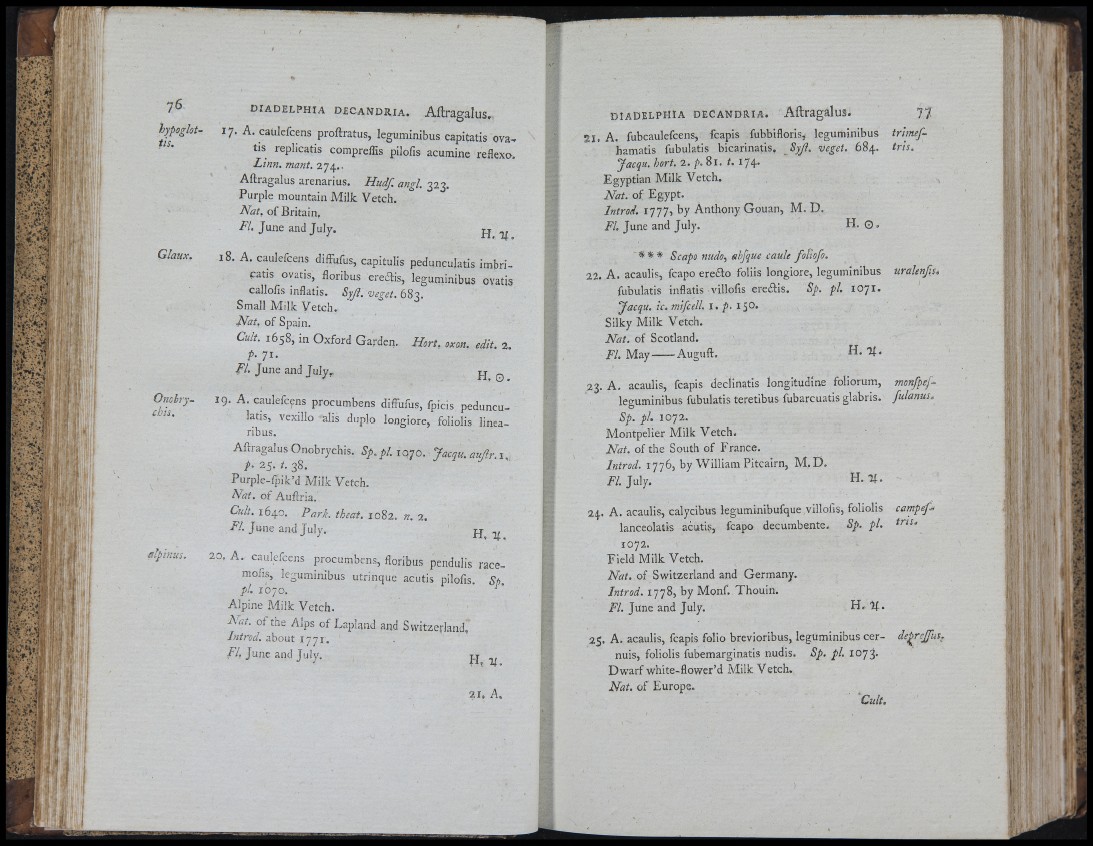 76 DIADELPHIA DECANDRIA. Aſtragalus.
hypoglot- 17. A. cauleſcens proſtratus, leguminibus capitatis ova-
tis. tis replicatis compreſſis piloſis acumine reflexo.
Linn. mant. 274.
Aſtragalus arenarius. Hudſ. angl. 323.
Purple mountain Milk Vetch.
Nat. of Britain.
Fl. June and July. H. ♃.
Glaux. 18. A. cauleſcens diffuſus, capitulis pedunculatis imbri-
catis ovatis, floribus erectis, leguminibus ovatis
calloſis inflatis. Syſt. veget. 683.
Small Milk Vetch.
Nat. of Spain.
Cult. 1658, in Oxford Garden. Hort. oxon. edit. 2.
p. 71.
Fl. June and July. H. ☉.
Onobry- 19. A. cauleſcens procumbens diffuſus, ſpicis peduncu-
chis. latis, vexillo alis duplo longiore, foliolis linea-
ribus.
Aſtragalus Onobrychis. Sp. pl. 1070. Jacqu. auſtr. 1.
p. 25. t. 38.
Purple-ſpik'd Milk Vetch.
Nat. of Auſtria.
Cult. 1640. Park. theat. 1082. n. 2.
Fl. June and July. H. ♃.
alpinus. 20. A. cauleſcens procumbens, floribus pendulis race-
moſis, leguminibus utrinque acutis piloſis. Sp.
pl. 1070.
Alpine Milk Vetch.
Nat. of the Alps of Lapland and Switzerland.
Introd. about 1771.
Fl. June and July. H. ♃.
21. A.
DIADELPHIA DECANDRIA. Aſtragalus. 77
21. A. ſubcauleſcens, ſcapis ſubbifloris, leguminibus trimeſ-
hamatis ſubulatis bicarinatis. Syſt. veget. 684. tris.
Jacqu. hort. 2. p. 81. t. 174.
Egyptian Milk Vetch.
Nat. of Egypt.
Introd. 1777, by Anthony Gouan, M. D.
Fl. June and July. H. ☉.
*** Scapo nudo, abſque caule folioſo.
22. A. acaulis, ſcapo erecto foliis longiore, leguminibus uralenſis.
ſubulatis inflatis villoſis erectis. Sp. pl. 1071.
Jacqu. ic. miſcell. 1. p. 150.
Silky Milk Vetch.
Nat. of Scotland.
Fl. May —— Auguſt. H. ♃.
23. A. acaulis, ſcapis declinatis longitudine foliorum, monſpeſ-
leguminibus ſubulatis teretibus ſubarcuatis glabris. ſulanus.
Sp. pl. 1072.
Montpelier Milk Vetch.
Nat. of the South of France.
Introd. 1776, by William Pitcairn, M.D.
Fl. July. H. ♃.
24. A. acaulis, calycibus leguminibuſque villoſis, foliolis campeſ-
lanceolatis acutis, ſcapo decumbente. Sp. pl. tris.
1072.
Field Milk Vetch.
Nat. of Switzerland and Germany.
Introd. 1778, by Monſ. Thouin.
Fl. June and July. H. ♃.
25. A. acaulis, ſcapis folio brevioribus, leguminibus cer- depreſſus.
nuis, foliolis ſubemarginatis nudis. Sp. pl. 1073.
Dwarf white-flower'd Milk Vetch.
Nat. of Europe.
Cult.